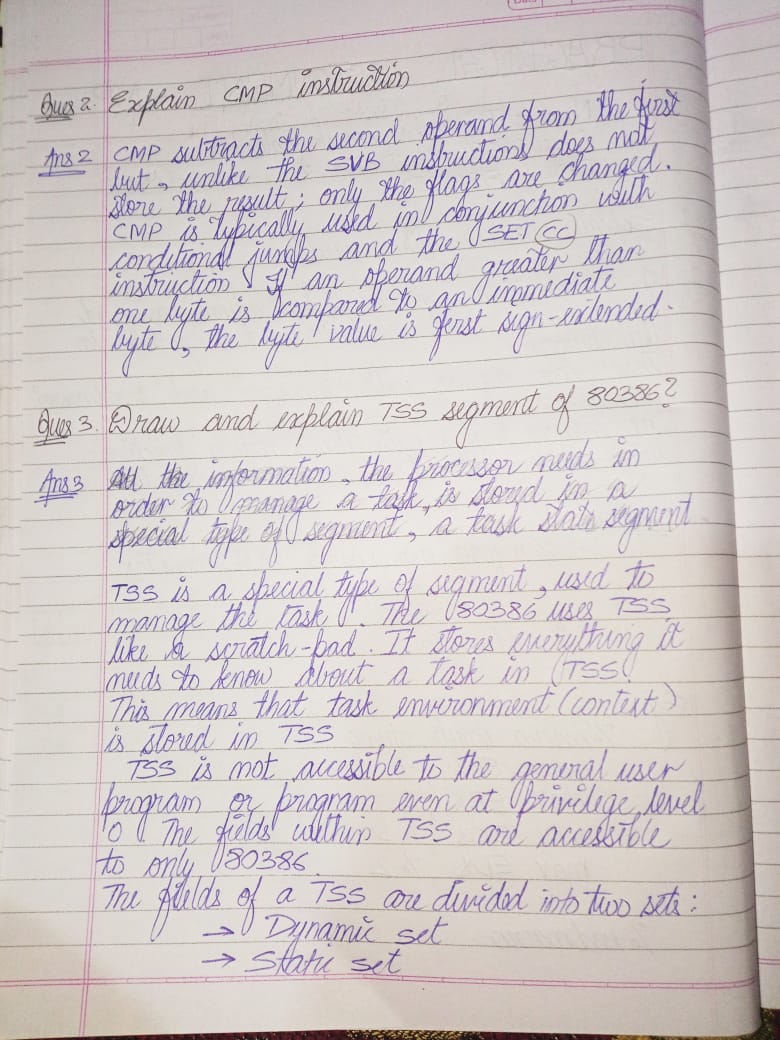 Ques 2. Explain CMP instruction
Ans 2 CMP subtracts the second operand from the first
but, unlike the SUB instructions does not
store the result; only the flags are changed.
CMP is typically used in conjunction with
conditional jumps and the SET CC
instruction. If an operand greater than
one byte is compared to an immediate
byte, the byte value is first sign-extended.
Ques 3. Draw and explain TSS segment of 80386?
Ans 3 All the information, the processor needs in
order to manage a task, is stored in a
special type of segment, a task state segment
TSS is a special type of segment, used to
manage the task. The 80386 uses TSS
like a scratch-pad. It stores everything it
needs to know about a task in TSS.
This means that task environment (context)
is stored in TSS
TSS is not accessible to the general user
program or program even at privilege level
0. The fields within TSS are accessible
to only 80386.
The fields of a TSS are divided into two sets:
→ Dynamic set
→ Static set